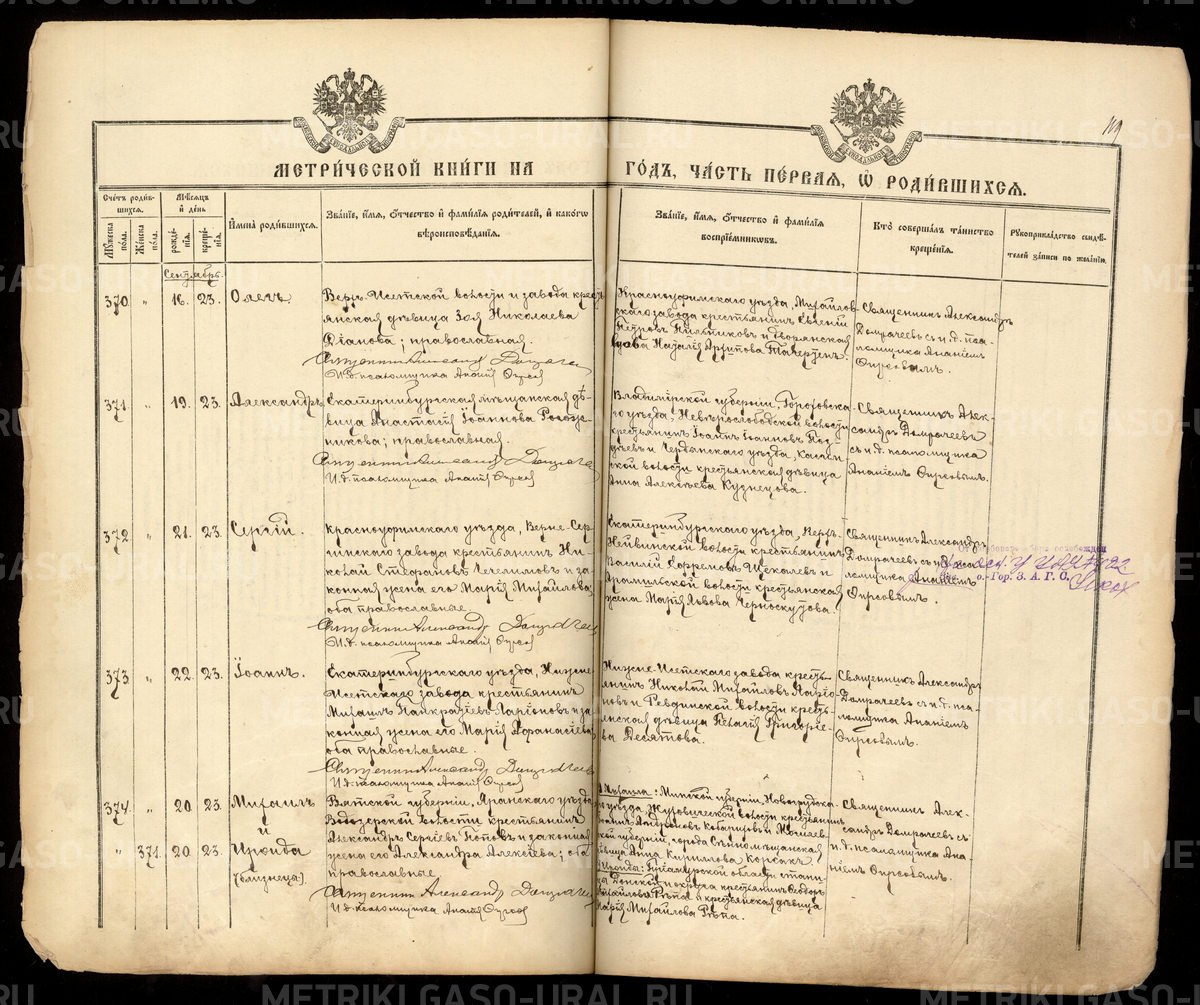 METRIKI.GASO-URAL.RU
119
МЕТРИ́ЧЕСКОЙ КНИ́ГИ НА
ГО́ДЪ, ЧА́СТЬ ПЕ́РВАЯ, Ѡ РОДИ́ВШИХСЯ.
Сче́тъ роди́в-
шихся.
Му́жеска по́ла.
Же́нска по́ла.
Мѣ́сяцъ
и́ де́нь
рожде́нія.
креще́нія.
И́мена̀ роди́вшихся.
Зва́ніе, и́мя, ѻ́тчество и́ фами́лія роди́телей, и́ како́гѡ
вѣроисповѣ́данія.
Зва́ніе, и́мя, ѻ́тчество и́ фами́лія
воспріе́мниковъ.
Кто̀ соверша́лъ та́инство
креще́нія.
Рꙋкоприкла́дство свидѣ́-
телей за́писи по жела́нію.
Сентябрь.
370
"
16.
23.
Олегъ
Верх-Исетской волости и завода крест
янская дѣвица Зоя Николаева
Діанова; православная.
Священникъ Александръ Домрачевъ
И.д. псаломщика Ананій
Красноуфимскаго уѣзда, Михайлов-
скаго завода крестьянинъ Евгеній
Петровъ Пильниковъ и дворянская
Наталія
Священникъ Александръ
Домрачевъ съ и.д. пса-
ломщика Ананіемъ
371
"
19.
23.
Александръ
Екатеринбургская мѣщанская дѣ-
вица Анастасія Іоаннова
никова; православная.
Священникъ Александръ Домрачевъ
И.д. псаломщика Ананій
Владимірской губерніи, Горохов
го уѣзда, волости
крестьянинъ Іоаннъ Іоанновъ
и Чердынскаго уѣзда,
ской волости крестьянская дѣвица
Анна Алексѣева Кузнецова.
Священникъ Алек-
сандръ Домрачевъ
съ и.д. псаломщика
Ананіемъ
372
"
21.
23.
Сергій.
Красноуфимскаго уѣзда, Верхне-Сер-
гинскаго завода крестьянинъ Ни-
колай Стефановъ и за-
конная жена его Марія Михайлова
оба православные.
Священникъ Александръ Домрачевъ
И.д. псаломщика Ананій
Екатеринбургскаго уѣзда, Верх-
Нейвинской волости крестьянинъ
Василій и
Арамильской волости крестьянская
жена Марія Львова Черноскутова.
Священникъ Александръ
Домрачевъ съ и.д. пса
ломщика Ананіемъ
о.-Гор. З. А. Г. С.
373
"
22.
23.
Іоаннъ.
Екатеринбургскаго уѣзда, Нижне-
Исетскаго завода крестьянинъ
Михаилъ Панкратіевъ Ларіоновъ и за-
конная жена его Марія Афанасіева
оба православные.
Священникъ Александръ Домрачевъ
И.д. псаломщика Ананій
Нижне-Исетскаго завода кресть-
янинъ Николай Михайловъ Ларіо-
новъ и Ревдинской волости кресть-
янская дѣвица Пелагія Григоріе-
ва Десятова.
Священникъ Александръ
Домрачевъ съ и.д. пса-
ломщика Ананіемъ
374
"
20
23.
Михаилъ
и
"
371
20.
23.
Ираида
(близнецы).
Вятской губерніи, Яранскаго уѣзда
Водозерской волости крестьянинъ
Александръ Сергіевъ Поповъ и законная
жена его Александра Алексіева; оба
православные
Священникъ Александръ Домрачевъ
И.д. псаломщика Ананій
Михаила: Минской губерніи, Новогрудска-
го уѣзда волости крестьянинъ
и Могилев-
ской губерніи, города мѣщанская
дѣвица Анна Кириллова Корсакъ
Ираиды:
крестьянинъ Ѳеодоръ
Михайловъ Рѣпа и крестьянская дѣвица
Марія Михайлова Рѣпа.
Священникъ Алек-
сандръ Домрачевъ съ
и.д. псаломщика Ана-
ніемъ